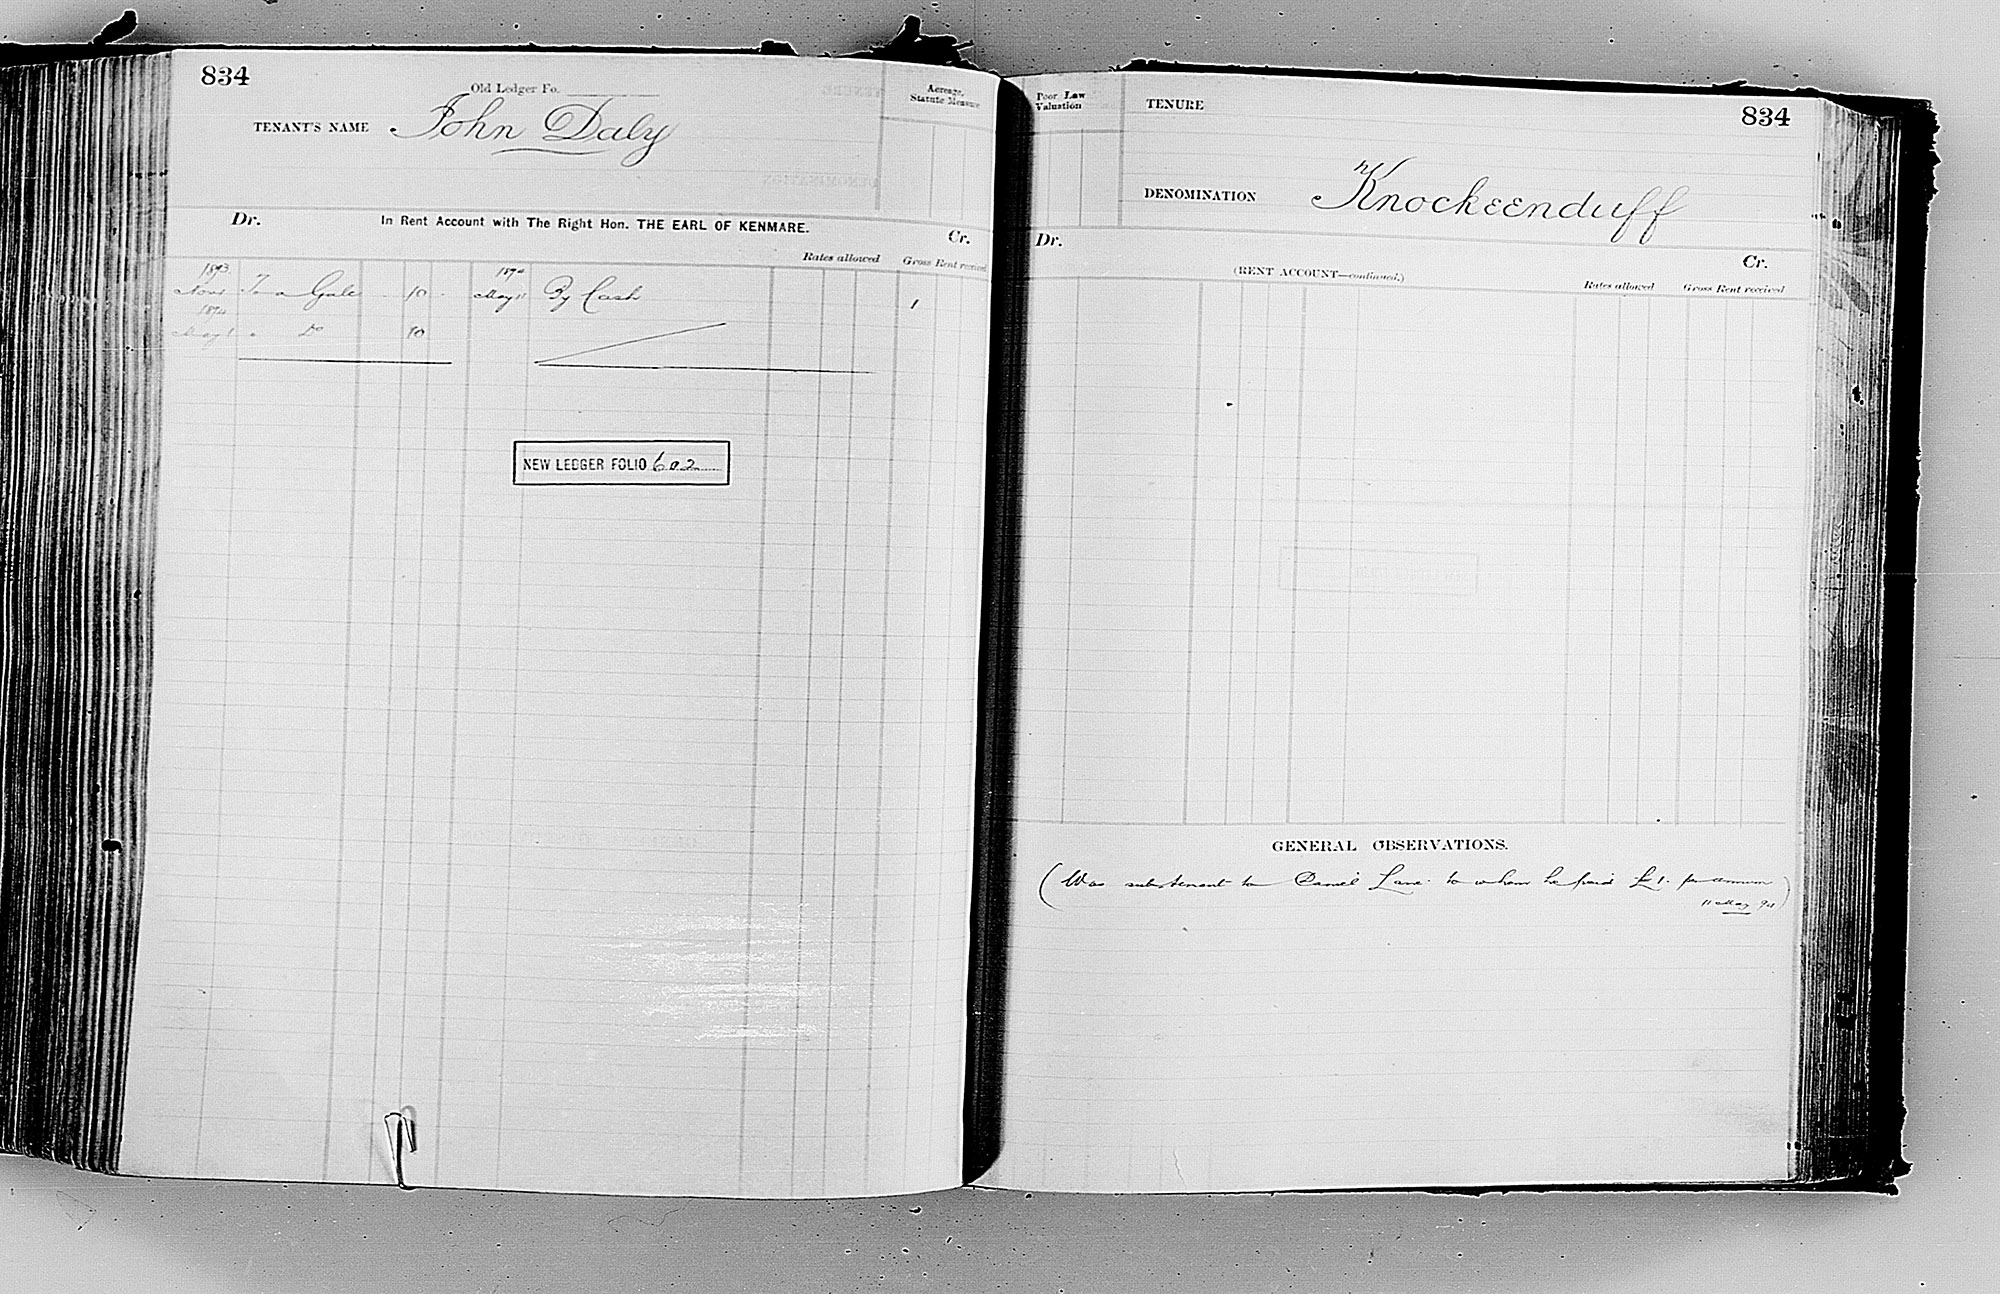 834
Old Ledger Fo.
Acreage, Statute Measure
TENANT'S NAME John Daly
Dr. In Rent Account with The Right Hon. THE EARL OF KENMARE. Cr.
Rates allowed Gross Rent received
1893 1894
Nov 1 To a Gale 10 May 11 By Cash 1
1894
May 1 " Do 10
NEW LEDGER FOLIO 602
Poor Law Valuation
TENURE
834
DENOMINATION Knockeenduff
Dr. Cr.
(RENT ACCOUNT—continued.)
Rates allowed Gross Rent received
GENERAL OBSERVATIONS.
(Was sub-tenant to Daniel Lane to whom he paid £1. per annum
11 May 94)